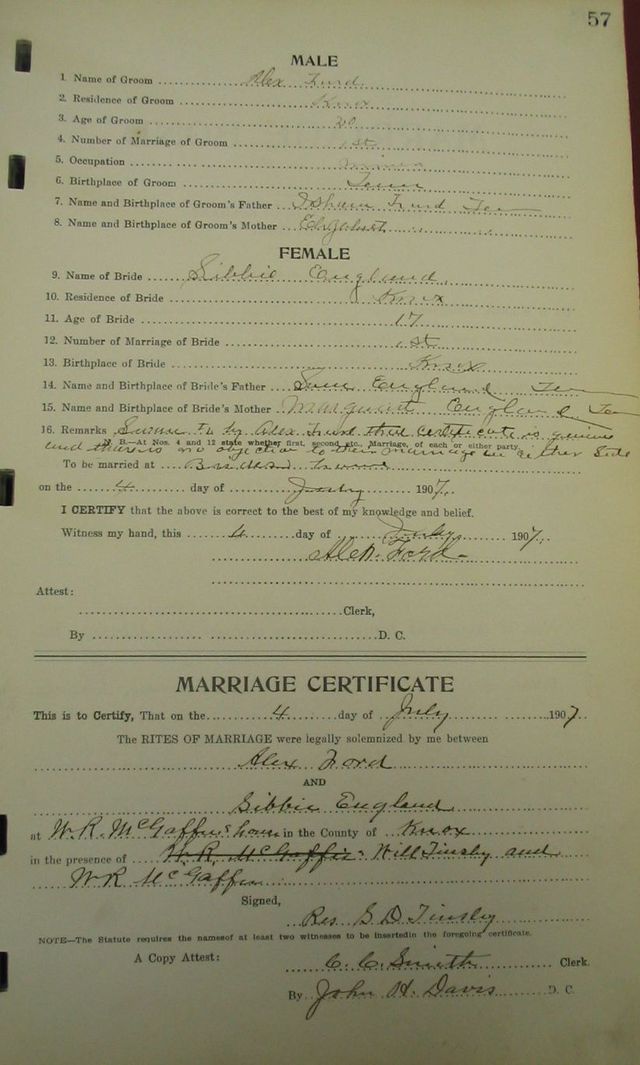 57
MALE
1. Name of Groom Alex Furd
2. Residence of Groom Knox
3. Age of Groom 20
4. Number of Marriage of Groom 1st
5. Occupation
6. Birthplace of Groom Tenn
7. Name and Birthplace of Groom's Father Isham Furd Ten
8. Name and Birthplace of Groom's Mother
FEMALE
9. Name of Bride Sibbie England
10. Residence of Bride Knox
11. Age of Bride 17
12. Number of Marriage of Bride 1st
13. Birthplace of Bride Knox
14. Name and Birthplace of Bride's Father England Ten
15. Name and Birthplace of Bride's Mother England Ten
16. Remarks Sworn to by Alex Furd that certificate is
N. B.—At Nos. 4 and 12 state whether first, second, etc., Marriage, of each or either party.
and there is no objection to their marriage on either side
To be married at
on the 4 day of July 1907.
I CERTIFY that the above is correct to the best of my knowledge and belief.
Witness my hand, this 4 day of July 1907.
Alex. Ford
Attest:
Clerk,
By D. C.
MARRIAGE CERTIFICATE
This is to Certify, That on the 4 day of July 1907.
The RITES OF MARRIAGE were legally solemnized by me between
Alex Ford
AND
Sibbie England
at W. R. McGaffin's house in the County of Knox
in the presence of W. R. McGaffin Will Tinsly and
W R McGaffin
Signed,
Res G D Tinsly
NOTE—The Statute requires the namesof at least two witnesses to be insertedin the foregoing certificate.
A Copy Attest: C. C. Smith Clerk.
By John H. Davis D. C.